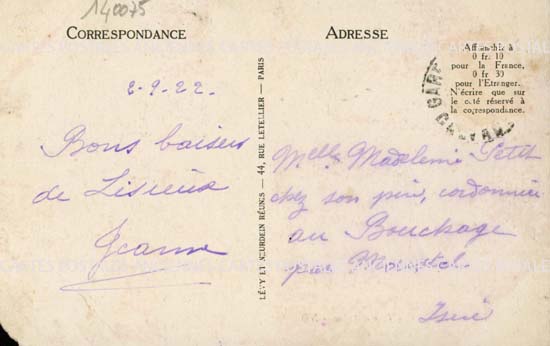 140075
CORRESPONDANCE
2-9-22.
Bons baisers
de Lisieux
Jeanne
LÉVY ET NEURDEIN RÉUNIS — 44, RUE LETELLIER — PARIS
ADRESSE
Affranchir à
0 fr. 10
pour la France,
0 fr 30
pour l'Etranger.
N'écrire que sur
le côté réservé à
la correspondance.
Melle Madeleine Petit
chez son père, cordonnier
au Bouchage
par Morestel
Isère